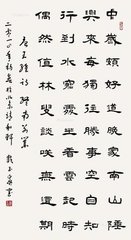 中歲頗好道晚家南山陲
興來每獨往勝事空自知
行到水窮處坐看雲起時
偶然值林叟談笑無還期
唐王維詩終南別業